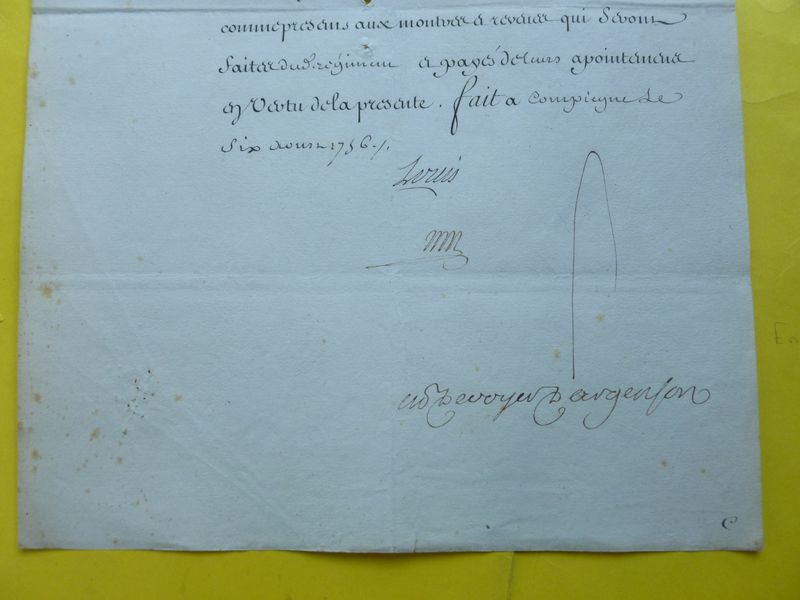 comme presens aux montres et reveües qui Seront
faites dud. regiment et payés de leurs apointemens
en Vertu de la presente. fait a Compiegne Le
Six Aoust 1756./.
Louis
M De Voyer D'argenson
C
En